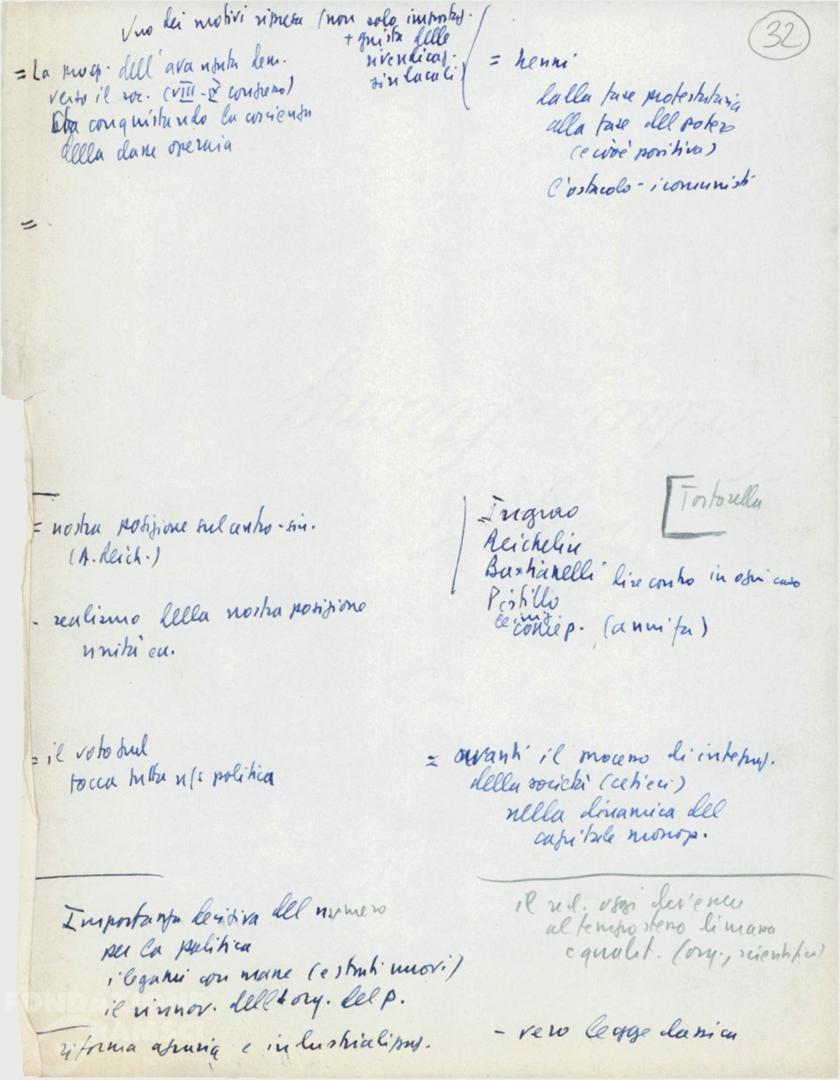 32
Uno dei motivi ripresa (non solo impostaz.
+ giusta delle
rivendicaz.
sindacali)
= La prosp. dell'avanzata dem.
verso il soc. (VIII-IX congresso)
sta conquistando la coscienza
della classe operaia
= Nenni
dalla fase protestataria
alla fase del potere
(e cioè positiva)
L'ostacolo - i comunisti
=
= nostra posizione sul centro-sin.
(A. Reich.)
- realismo della nostra posizione
unità ecc.
Ingrao
Reichlin
Bastianelli
Pistillo
comiep. (annita)
dire contro in ogni caso
[Tortorella
= il voto sul
tocca tutta n/s politica
= avanti il processo di integraz.
della società (ceti ecc)
nella dinamica del
capitale monop.
Importanza decisiva del numero
per la politica
i legami con masse (e strati nuovi)
il rinnov. dell'org. del p.
il red. oggi dev'essere
al tempo stesso di massa
e qualit. (org., scientifico)
riforma agraria e industrializzaz.
- vero legge classica
FONDAZIONE
GRAMSCI